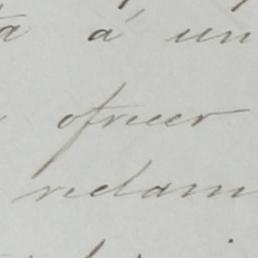 ta á un
ofrecer
reclam